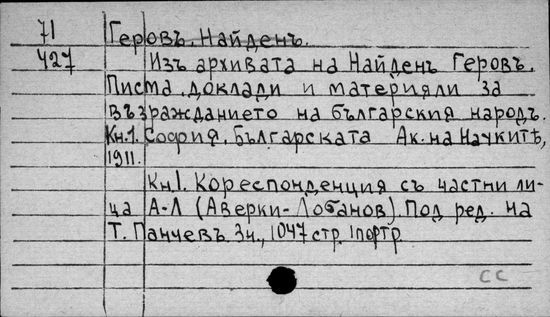 71 Геровъ, Найденъ.
427 Изъ архивата на Найденъ Геровъ.
Писма, доклади и материяли за
възраждането на българския народъ.
Кн.1. София, Българската Ак. на Науките,
1911.
Кн1. Кореспонденция съ частни ли-
ца А-Л (Аверки-Лобанов). Под ред. на
Т. Панчевъ. 3ч., 1047 стр. 1 портр.
CC